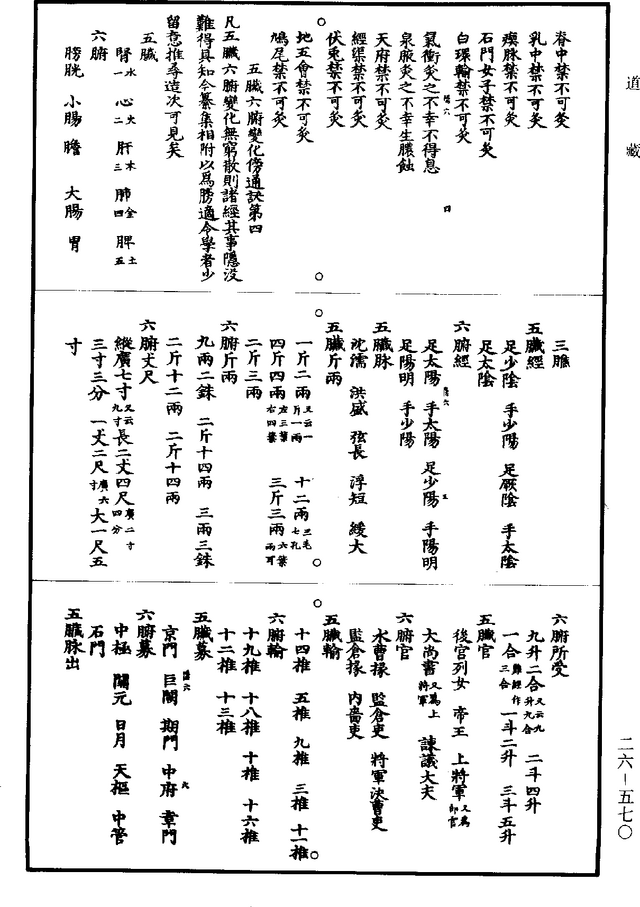 道藏
脊中禁不可灸
乳中禁不可灸
瘈脉禁不可灸
石門女子禁不可灸
白環輸禁不可灸
氣衝灸之不幸不得息
泉腋灸之不幸生膿蝕
天府禁不可灸
經渠禁不可灸
伏兎禁不可灸
地五會禁不可灸
鳩尾禁不可灸
五臟六腑變化傍通訣第四
凡五臟六腑變化無窮散則諸經其事隱没
難得具知今纂集相附以爲勝適令學者少
留意推尋造次可見矣
五臟
腎水一 心火二 肝木三 肺金四 脾土五
六腑
膀胱 小腸 膽 大腸 胃
三膲
五臟經
足少陰 手少陽 足厥陰 手太陰
足太陰
六腑經
足太陽 手太陽 足少陽 手陽明
足陽明 手少陽
五臟脉
沈濡 洪盛 弦長 浮短 緩大
五臟斤兩
一斤二兩又云一斤一兩 十二兩三毛七孔
四斤四兩左三葉右四葉 三斤三兩六葉兩耳
二斤三兩
六腑斤兩
九兩二銖 二斤十四兩 三兩三銖
二斤十二兩 二斤十四兩
六腑丈尺
縱廣七寸又云九寸 長二丈四尺廣二寸四分
三寸三分 一丈二尺廣六寸 大一尺五
寸
六腑所受
九升二合又云九升九合 二斗四升
一合難經作三合 一斗二升 三斗五升
五臟官
後宫列女 帝王 上將軍又爲郎官
大尚書又爲上將軍 諫議大夫
六腑官
水曹掾 監倉吏 將軍決曹吏
監倉掾 内嗇吏
五臟輸
十四椎 五椎 九椎 三椎 十一椎
六腑輸
十九椎 十八椎 十椎 十六椎
十二椎 十三椎
五臟募
京門 巨闕 期門 中府 章門
六腑募
中極 關元 日月 天樞 中管
石門
五臟脉出
二六—五七〇